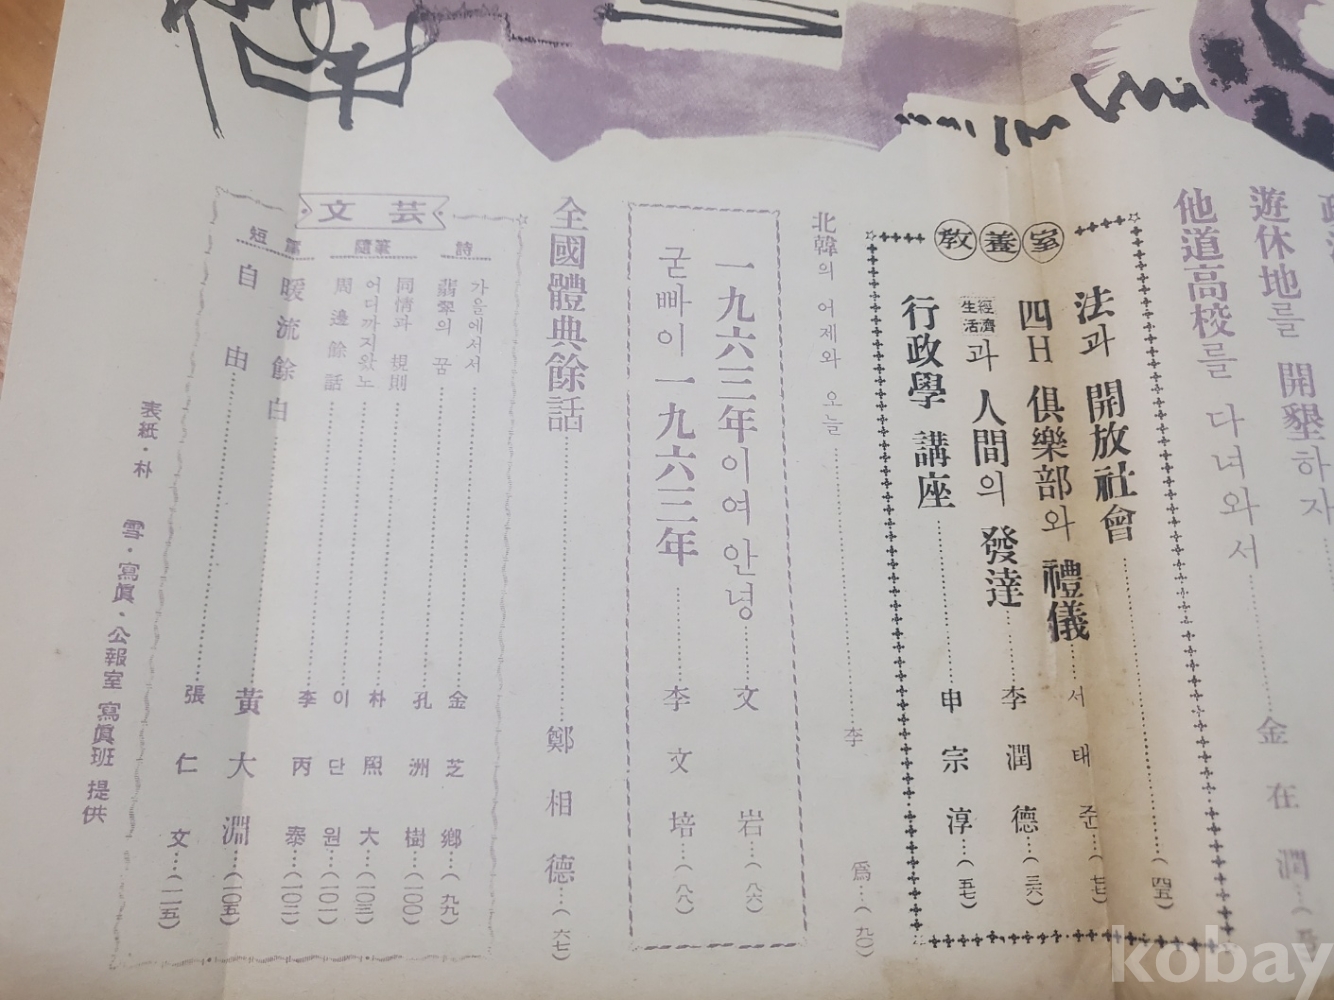 遊休地를 開墾하자
他道高校를 다녀와서……金在潤
敎養室
法과 開放社會……(四五)
四H 俱樂部와 禮儀……서태준…(七七)
經濟生活과 人間의 發達……李潤德…(三六)
行政學 講座……申宗淳…(五七)
北韓의 어제와 오늘……李 爲…(九〇)
一九六三年이여 안녕……文 岩…(八六)
굳빠이 一九六三年……李文培…(八八)
全國體典餘話……鄭相德…(六七)
文芸
詩
가을에서서……金芝鄕…(九九)
翡翠의 꿈……孔洲樹…(一〇〇)
隨筆
同情과 規則……朴凞大…(一〇三)
어디까지왔노……이단원…(一〇一)
周邊餘話……李丙泰…(一〇二)
短篇
暖流餘白……黃大淵…(一〇五)
自由……張仁文…(一一五)
表紙·朴 雪·寫眞·公報室 寫眞班 提供
kobay